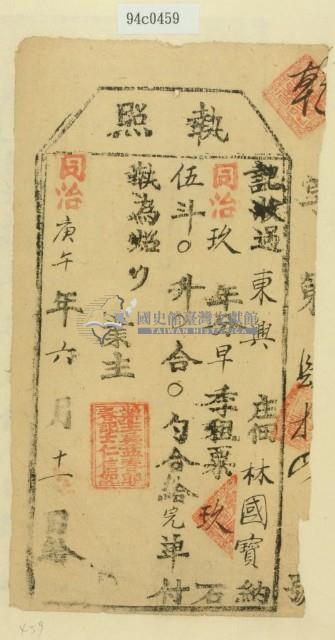 94c0459
執照
記收過東興庄佃林國寶納
同治玖年分早季租粟玖石
伍斗○升○合○勺合給完單付
執為炤
業主
同治庚午年六月十一日給
國史館臺灣文獻館
TAIWAN HISTORICA
乾
459